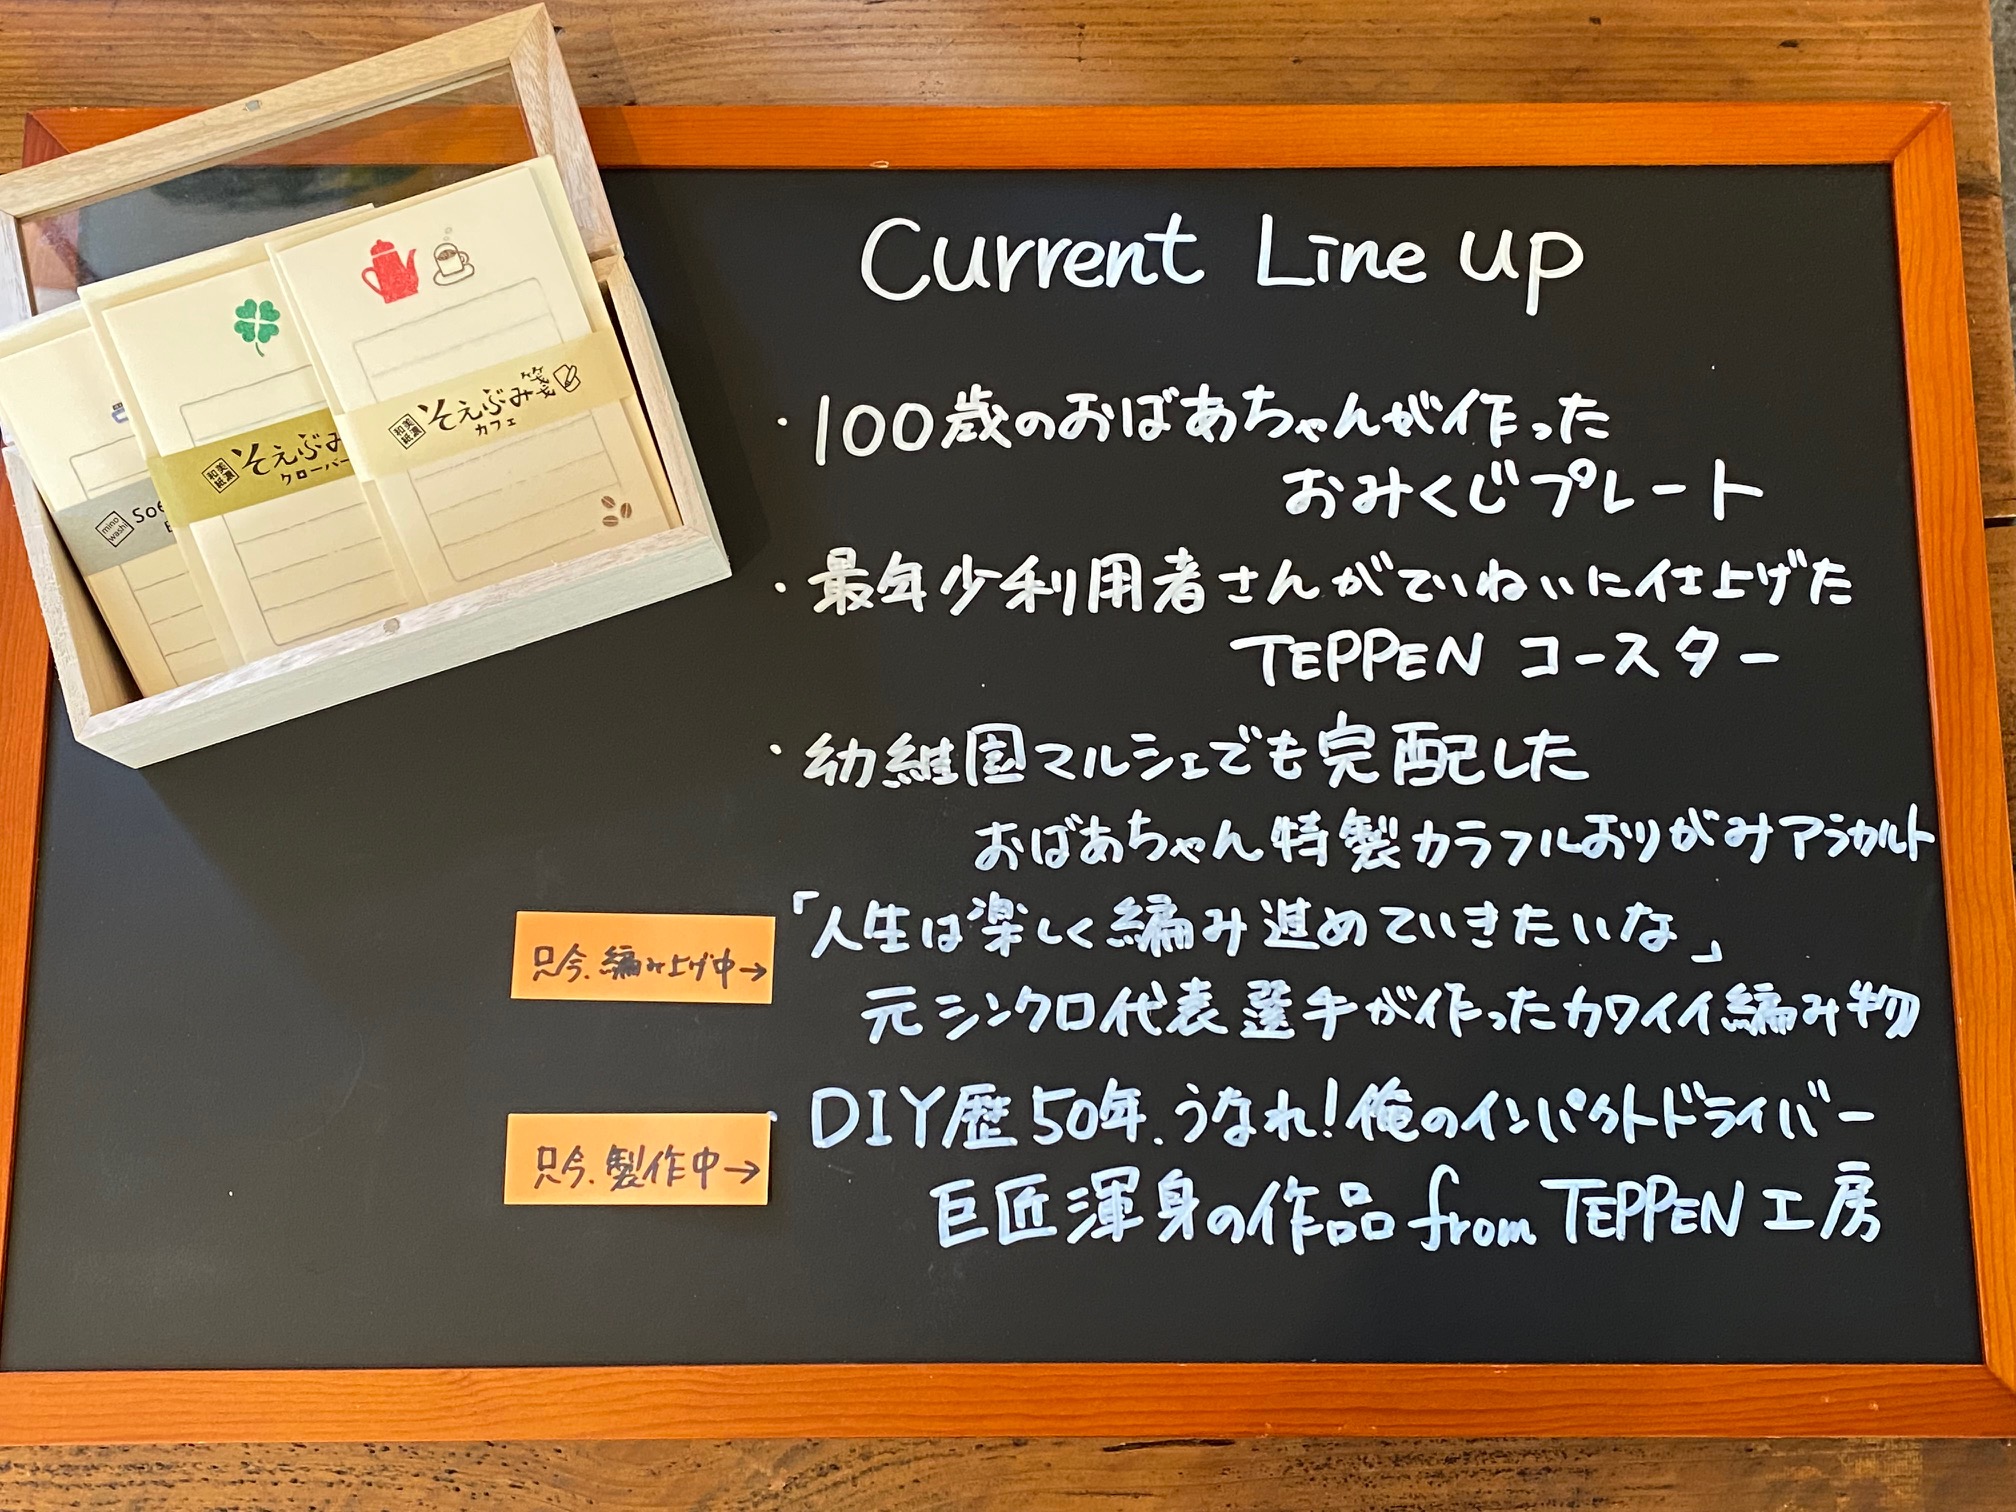 Current Line up
・100歳のおばあちゃんが作った
おみくじプレート
・最年少利用者さんがていねいに仕上げた
TEPPEN コースター
・幼稚園マルシェでも完配した
おばあちゃん特製カラフルおりがみアラカルト
「人生は楽しく編み進めていきたいな」
元シンクロ代表選手が作ったカワイイ編み物
・DIY歴50年、うなれ!俺のインパクトドライバー
巨匠渾身の作品 from TEPPEN工房
只今、編み上げ中→
只今、製作中→
美濃和紙 そえぶみ箋
カフェ
美濃和紙 そえぶみ
クローバー
mino washi Soe